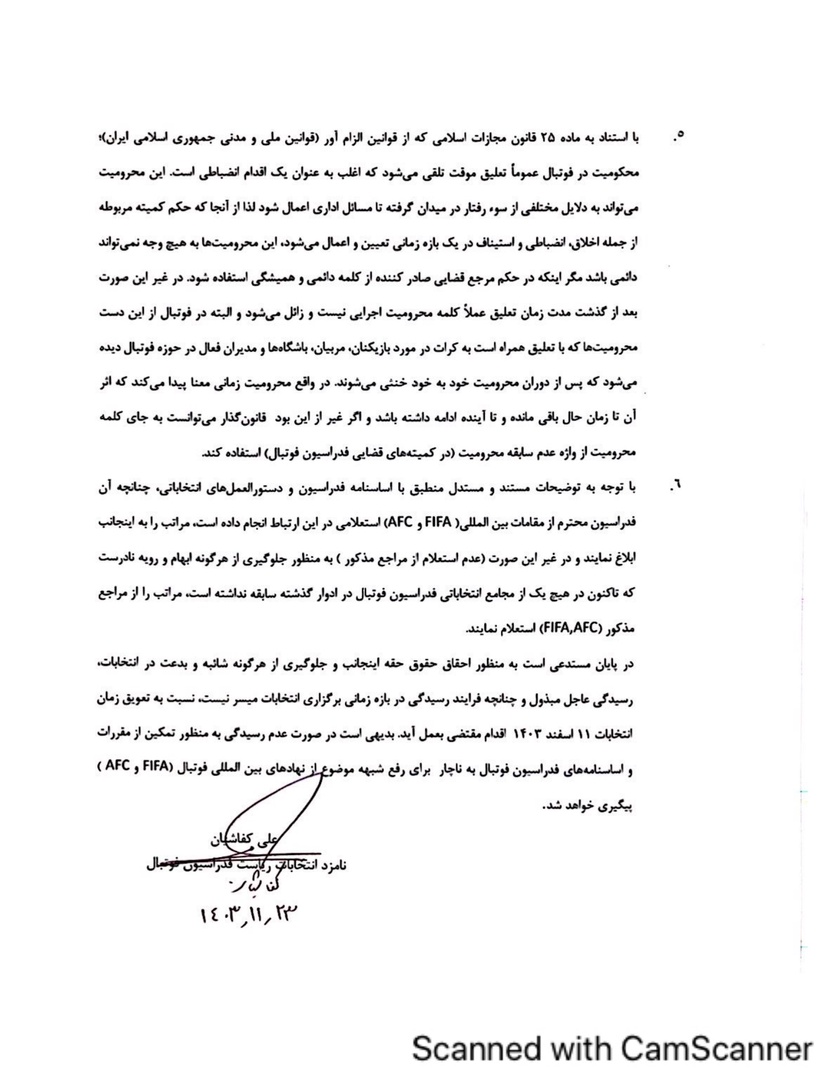 ۵. با استناد به ماده ۲۵ قانون مجازات اسلامی که از قوانین الزام آور (قوانین ملی و مدنی جمهوری اسلامی ایران)؛
محکومیت در فوتبال عموماً تعلیق موقت تلقی می‌شود که اغلب به عنوان یک اقدام انضباطی است. این محرومیت
می‌تواند به دلایل مختلفی از سوء رفتار در میدان گرفته تا مسائل اداری اعمال شود لذا از آنجا که حکم کمیته مربوطه
از جمله اخلاق، انضباطی و استیناف در یک بازه زمانی تعیین و اعمال می‌شود، این محرومیت‌ها به هیچ وجه نمی‌تواند
دائمی باشد مگر اینکه در حکم مرجع قضایی صادر کننده از کلمه دائمی و همیشگی استفاده شود. در غیر این صورت
بعد از گذشت مدت زمان تعلیق عملاً کلمه محرومیت اجرایی نیست و زائل می‌شود و البته در فوتبال از این دست
محرومیت‌ها که با تعلیق همراه است به کرات در مورد بازیکنان، مربیان، باشگاه‌ها و مدیران فعال در حوزه فوتبال دیده
می‌شود که پس از دوران محرومیت خود به خود خنثی می‌شوند. در واقع محرومیت زمانی معنا پیدا می‌کند که اثر
آن تا زمان حال باقی مانده و تا آینده ادامه داشته باشد و اگر غیر از این بود قانون‌گذار می‌توانست به جای کلمه
محرومیت از واژه عدم سابقه محرومیت (در کمیته‌های قضایی فدراسیون فوتبال) استفاده کند.
۶. با توجه به توضیحات مستند و مستدل منطبق با اساسنامه فدراسیون و دستورالعمل‌های انتخاباتی، چنانچه آن
فدراسیون محترم از مقامات بین المللی( FIFA و AFC) استعلامی در این ارتباط انجام داده است، مراتب را به اینجانب
ابلاغ نمایند و در غیر این صورت (عدم استعلام از مراجع مذکور ) به منظور جلوگیری از هرگونه ابهام و رویه نادرست
که تاکنون در هیچ یک از مجامع انتخاباتی فدراسیون فوتبال در ادوار گذشته سابقه نداشته است، مراتب را از مراجع
مذکور (FIFA,AFC) استعلام نمایند.
در پایان مستدعی است به منظور احقاق حقوق حقه اینجانب و جلوگیری از هرگونه شائبه و بدعت در انتخابات،
رسیدگی عاجل مبذول و چنانچه فرایند رسیدگی در بازه زمانی برگزاری انتخابات میسر نیست، نسبت به تعویق زمان
انتخابات ۱۱ اسفند ۱۴۰۳ اقدام مقتضی بعمل آید. بدیهی است در صورت عدم رسیدگی به منظور تمکین از مقررات
و اساسنامه‌های فدراسیون فوتبال به ناچار برای رفع شبهه موضوع از نهادهای بین المللی فوتبال (FIFA و AFC )
پیگیری خواهد شد.
علی کفاشیان
نامزد انتخابات ریاست فدراسیون فوتبال
۱۴۰۳,۱۱,۲۳
Scanned with CamScanner